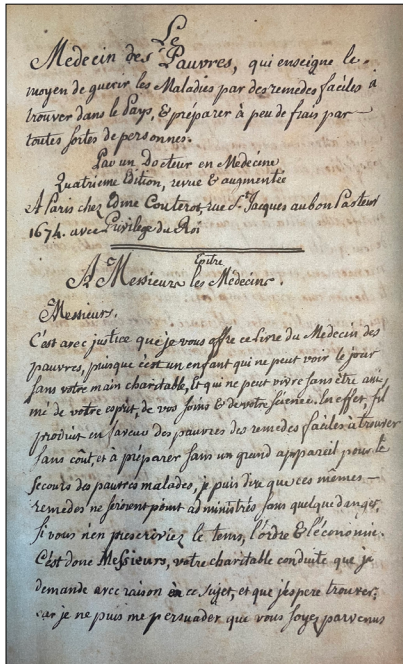 Le
Medecin des Pauvres, qui enseigne le
moyen de guerir les Maladies par des remedes faciles à
trouver dans le Pays, & préparer à peu de frais par
toutes sortes de personnes.
Par un Docteur en Medecine
Quatrieme Edition, revue & augmentée
A Paris chez Edme Couterot, rue St. Jacques au bon Pasteur
1674. avec Privilege du Roi
Epitre
A Messieurs les Médecins.
Messieurs,
C'est avec justice que je vous offre ce Livre du Medecin des
pauvres, puisque c'est un enfant qui ne peut voir le jour
sans votre main charitable, et qui ne peut vivre sans être ani-
mé de votre esprit, de vos soins & de votre science. En effet, s'il
produit en faveur des pauvres des remedes faciles à trouver
sans coût, et à preparer sans un grand appareil pour le
secours des pauvres malades, je puis dire que ces mêmes
remedes ne seroient point administrés sans quelque danger,
si vous n'en prescriviez le tems, l'ordre & l'économie.
C'est donc Messieurs, votre charitable conduite que je
demande avec raison en ce sujet, et que j'espere trouver;
car je ne puis me persuader que vous soyez parvenus